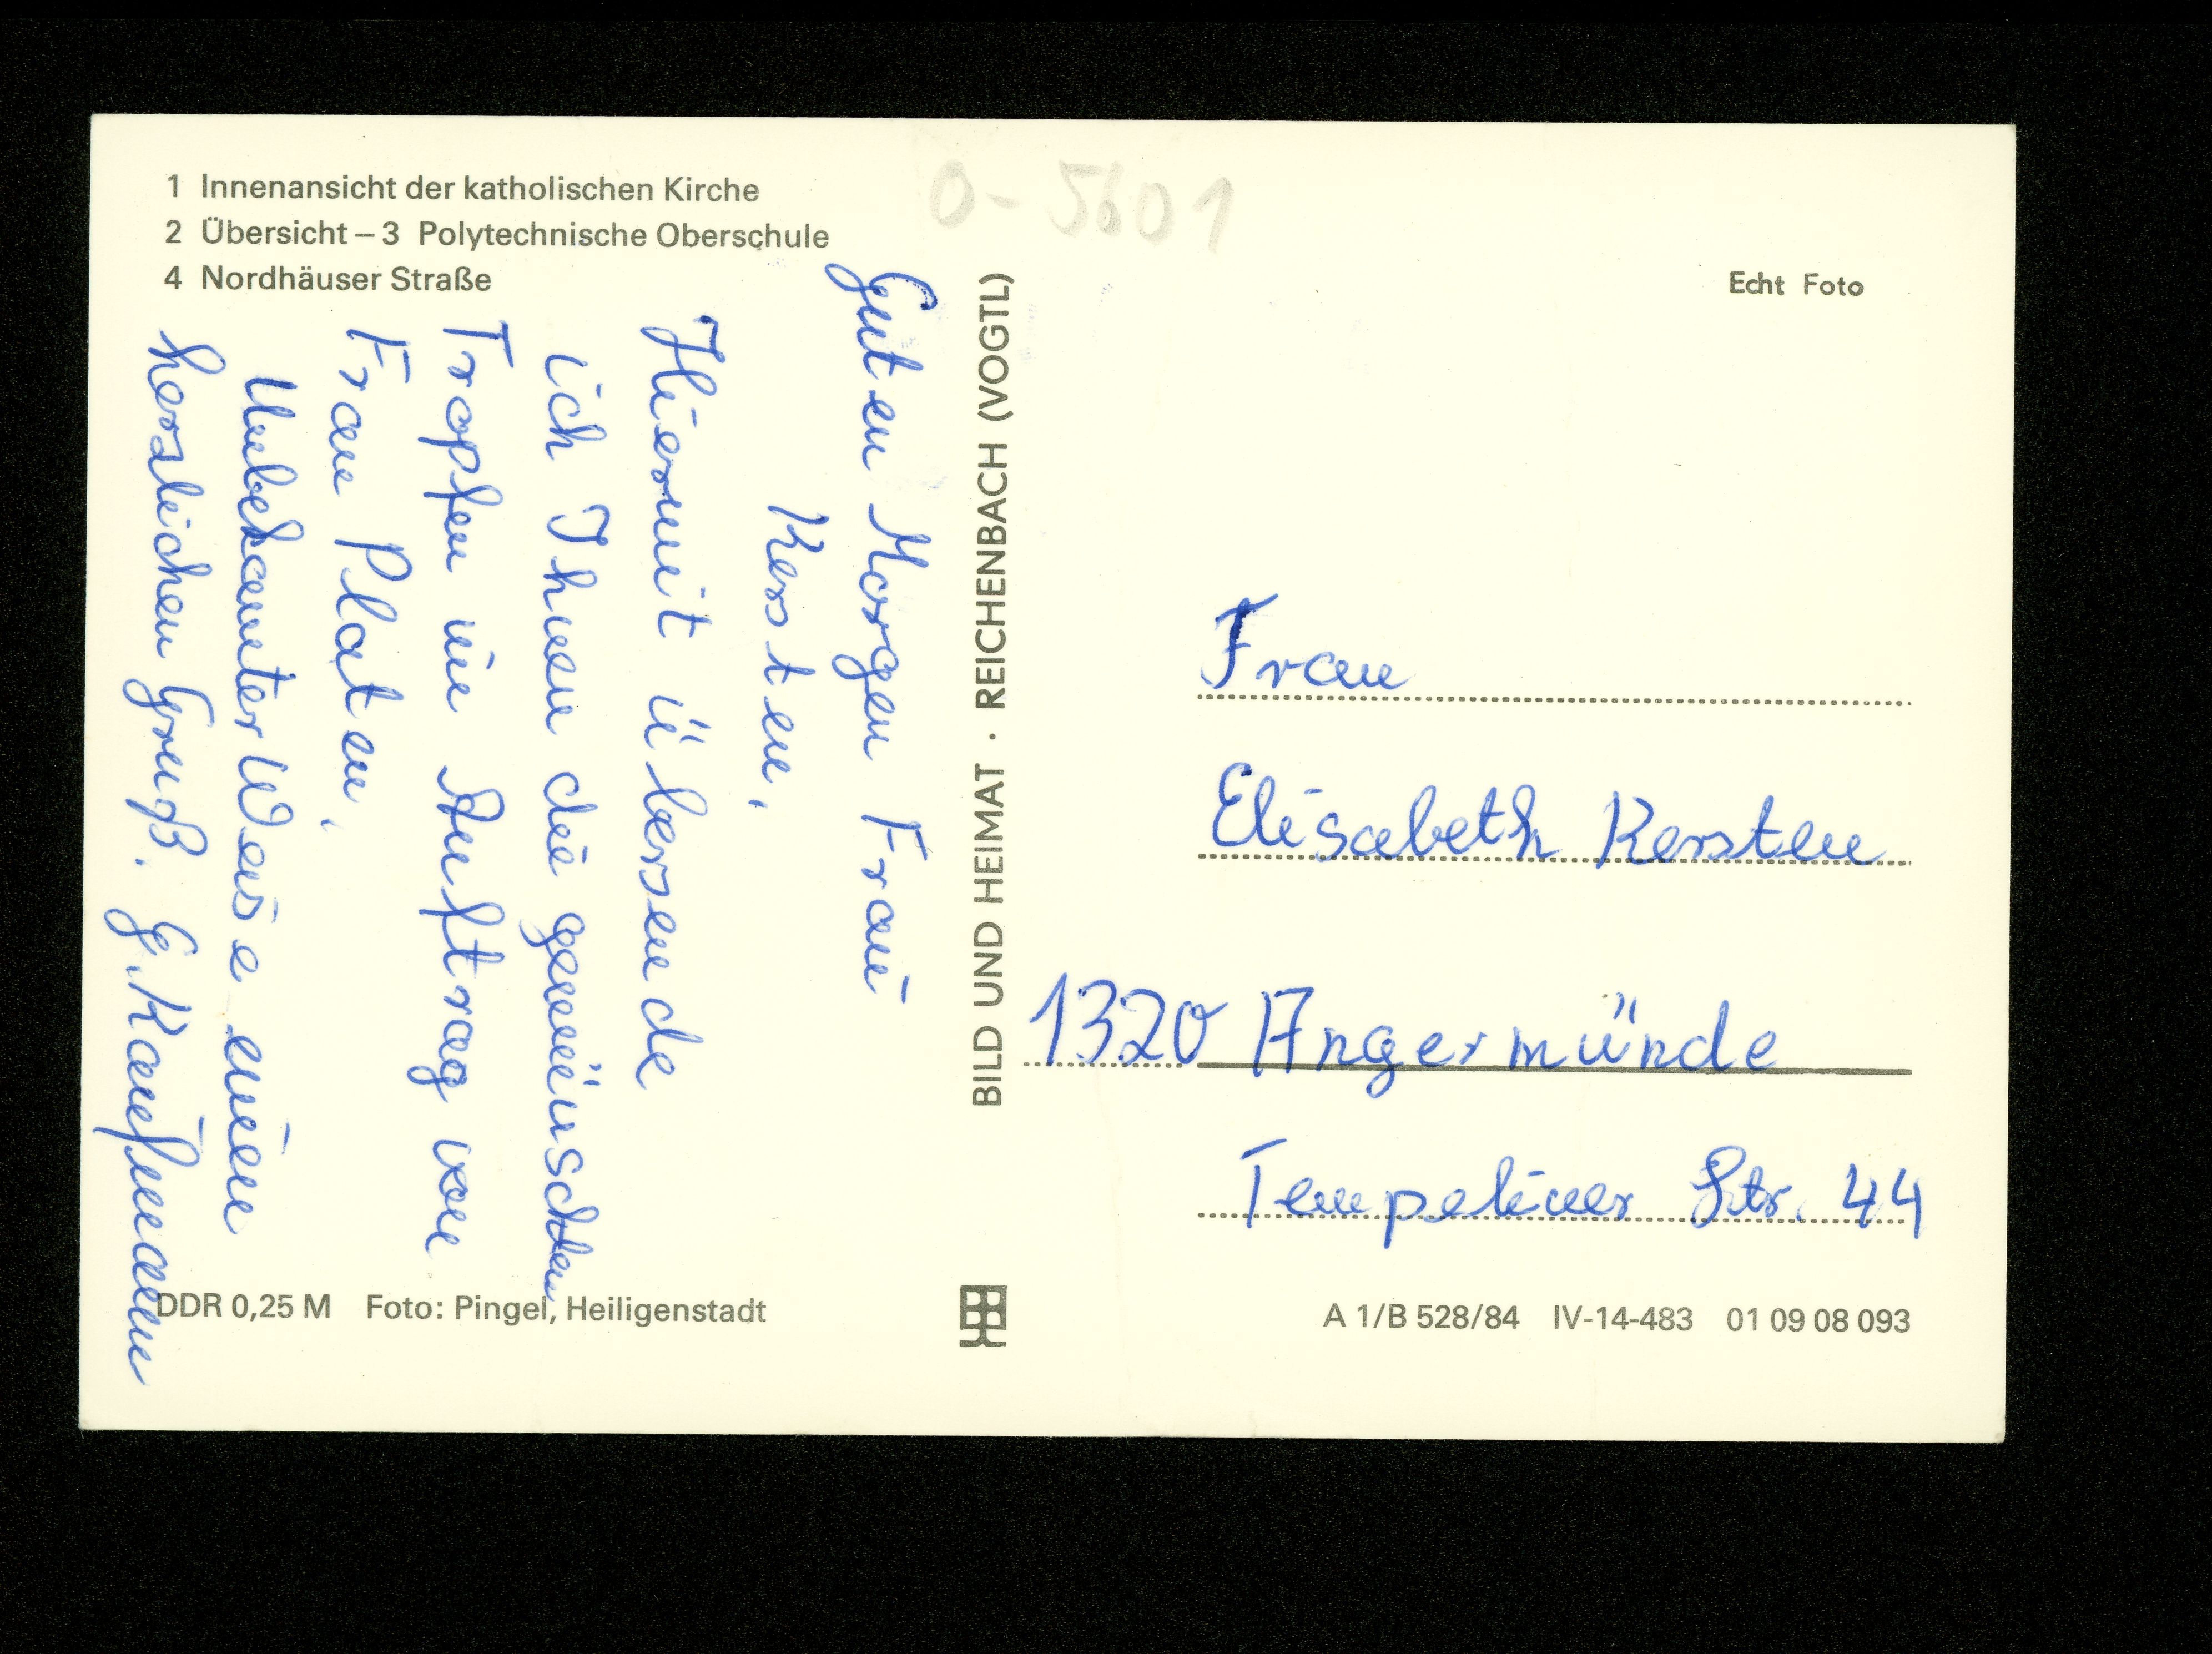 1 Innenansicht der katholischen Kirche
2 Übersicht – 3 Polytechnische Oberschule
4 Nordhäuser Straße
Guten Morgen Frau
Kersten,
Hiermit übersende
ich Ihnen die gewünschten
Tropfen im Auftrag von
Frau Platen,
Unbekannter Weise einen
herzlichen Gruß. G. Kaufmann
DDR 0,25 M Foto: Pingel, Heiligenstadt
BILD UND HEIMAT · REICHENBACH (VOGTL)
0-5601
Echt Foto
Frau
Elisabeth Kersten
1320 Angermünde
Templiner Str. 44
A 1/B 528/84 IV-14-483 01 09 08 093